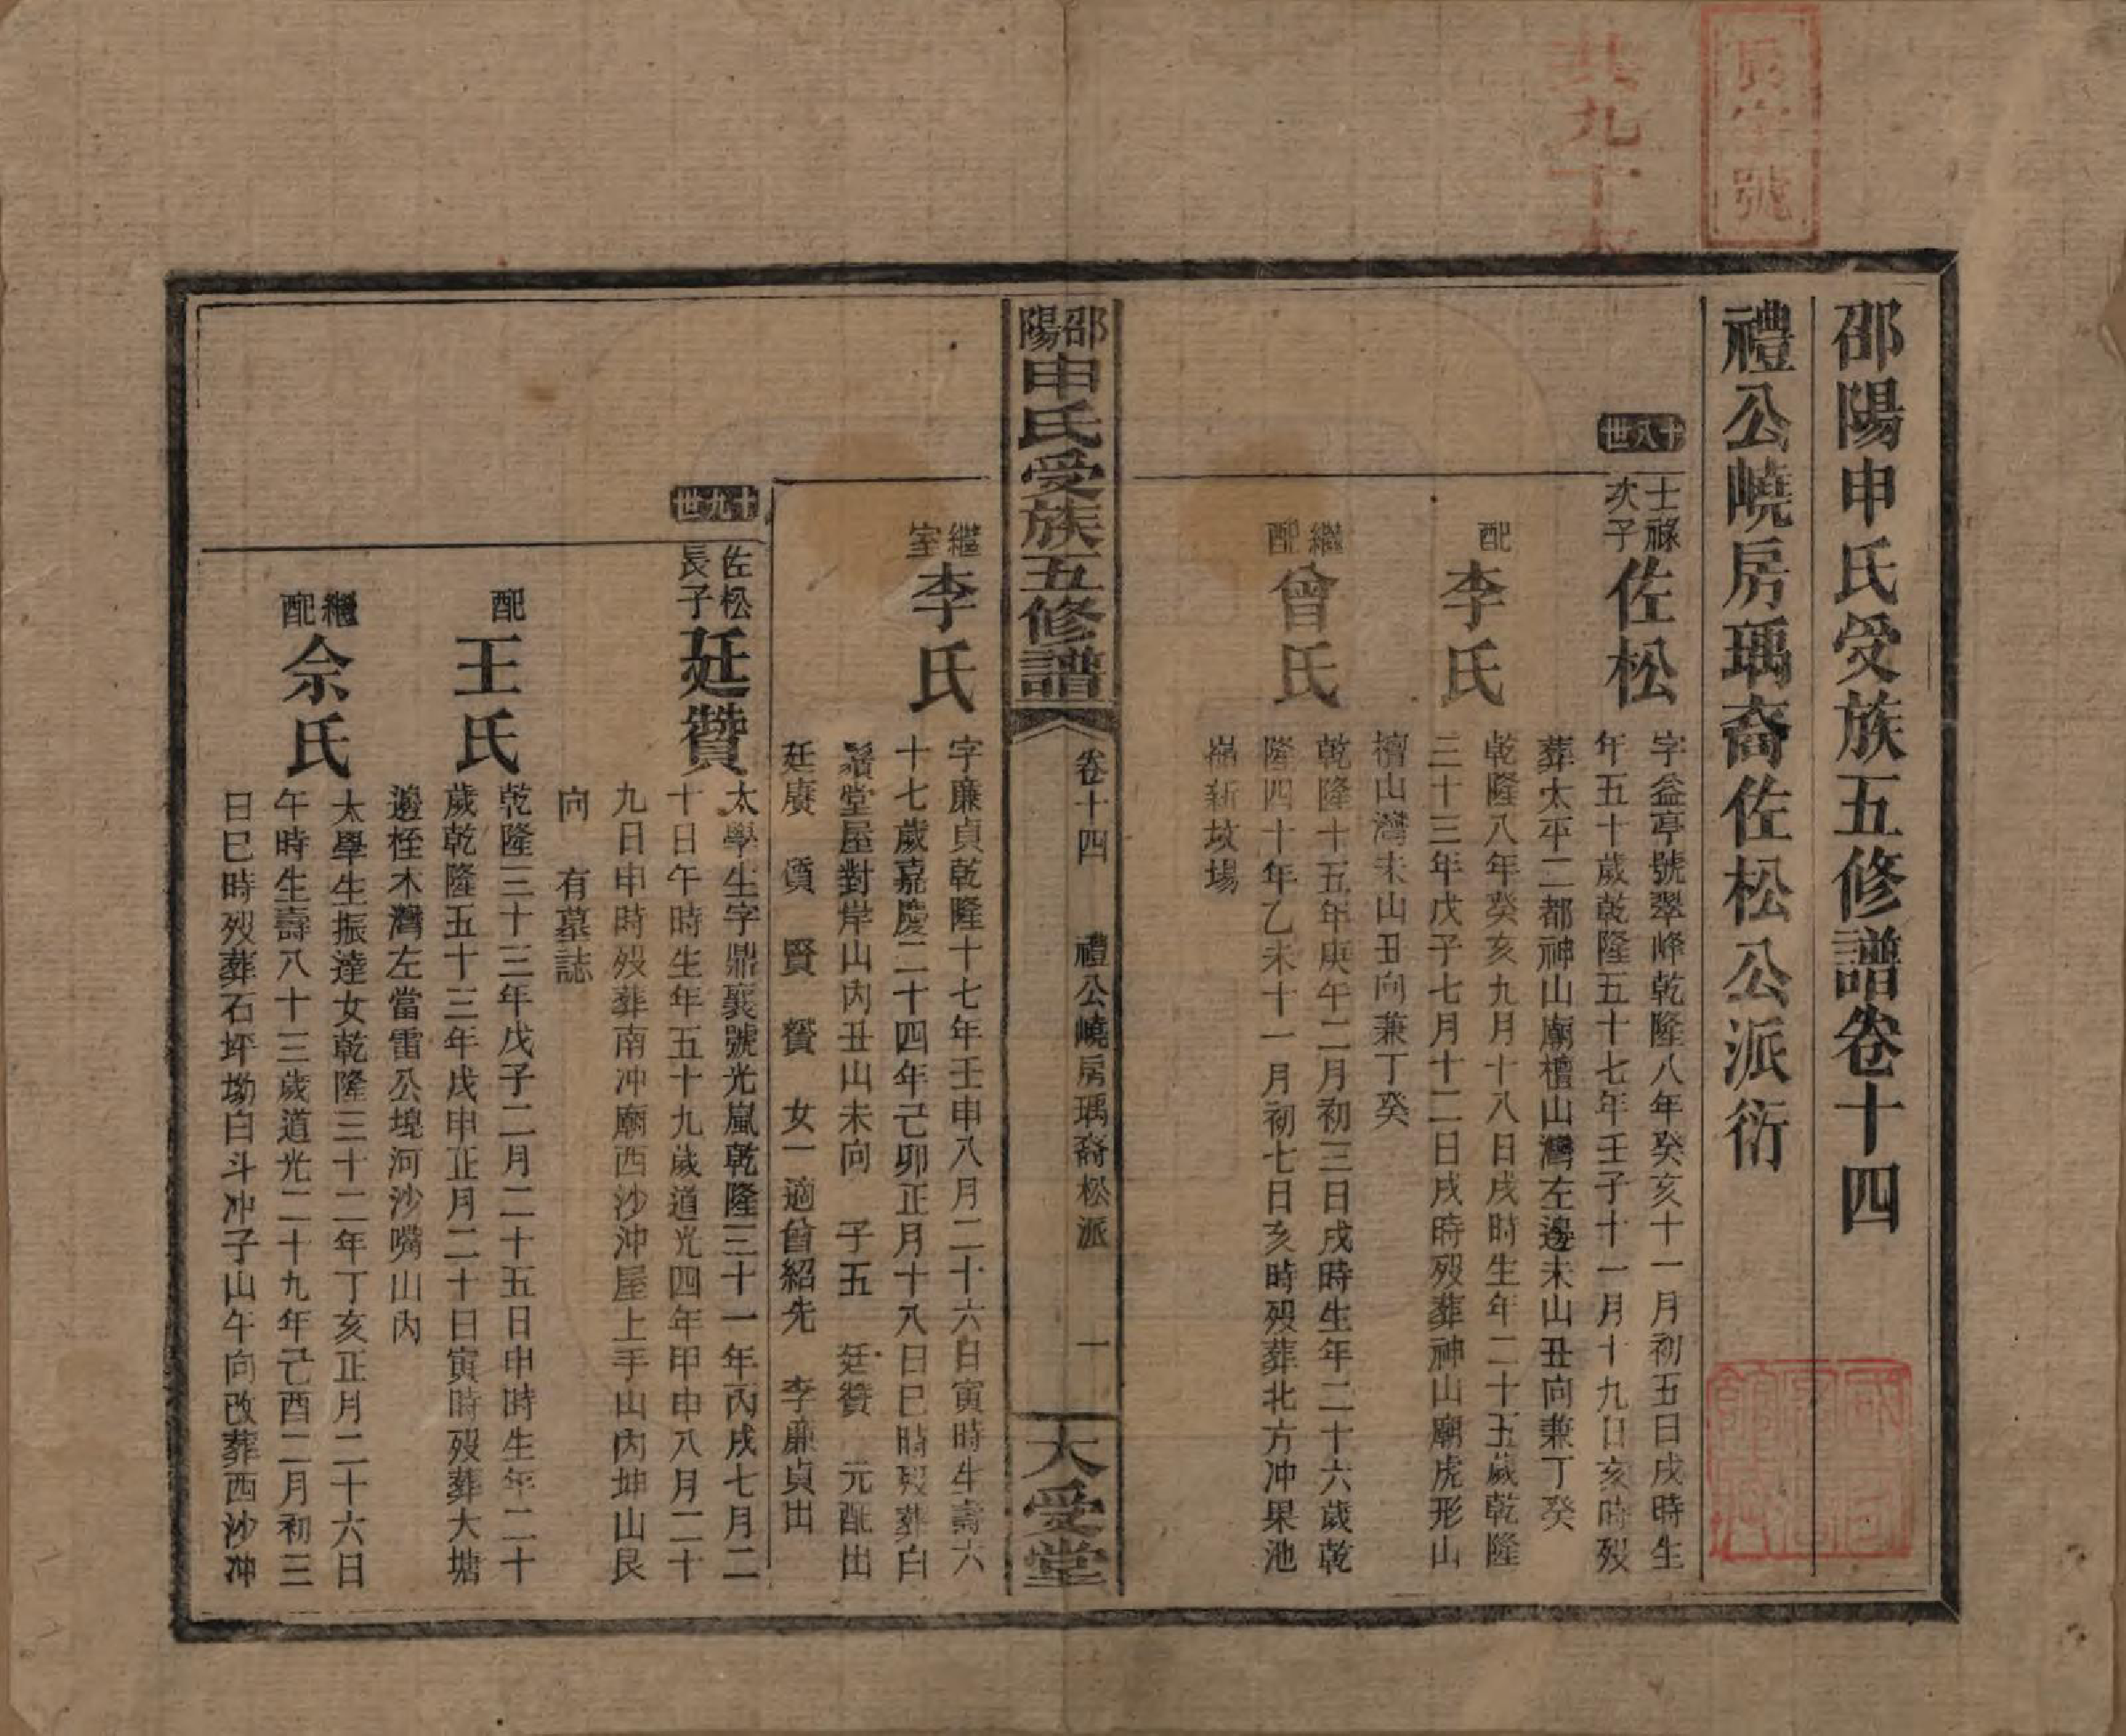 號
共九十
邵陽申氏受族五修譜卷十四
禮公嶢房瑀裔佐松公派衍
十八世
士祿次子
佐松
字益亭號翠峰乾隆八年癸亥十一月初五日戌時生
年五十歲乾隆五十七年壬子十一月十九日亥時歿
葬太平二都神山廟檀山灣左邊未山丑向兼丁癸
配
李氏
乾隆八年癸亥九月十八日戌時生年二十五歲乾隆
三十三年戊子七月十二日戌時歿葬神山廟虎形山
檀山灣未山丑向兼丁癸
繼配
曾氏
乾隆十五年庚午二月初三日戌時生年二十六歲乾
隆四十年乙未十一月初七日亥時歿葬北方冲果池
新坟場
邵陽申氏受族五修譜
卷十四
禮公嶢房瑀裔松派
一
大受堂
繼室
李氏
字廉貞乾隆十七年壬申八月二十六日寅時生壽六
十七歲嘉慶二十四年己卯正月十八日巳時歿葬白
譜堂屋對岸山內丑山未向 子五 廷贊 元配出
廷賡 賡 賢 贇 女一適曾紹先 李廉貞出
十九世
佐松長子
廷贊
太學生字鼎襄號光嵐乾隆三十一年丙戌七月二
十日午時生年五十九歲道光四年甲申八月二十
九日申時歿葬南冲廟西沙沖屋上手山內坤山艮
向 有墓誌
配
王氏
乾隆三十三年戊子二月二十五日申時生年二十
歲乾隆五十三年戊申正月二十日寅時歿葬大塘
邊桎木灣左當雷公堄河沙嘴山內
繼配
佘氏
太學生振達女乾隆三十二年丁亥正月二十六日
午時生壽八十三歲道光二十九年己酉二月初三
日巳時歿葬石坪坳白斗冲子山午向改葬西沙冲